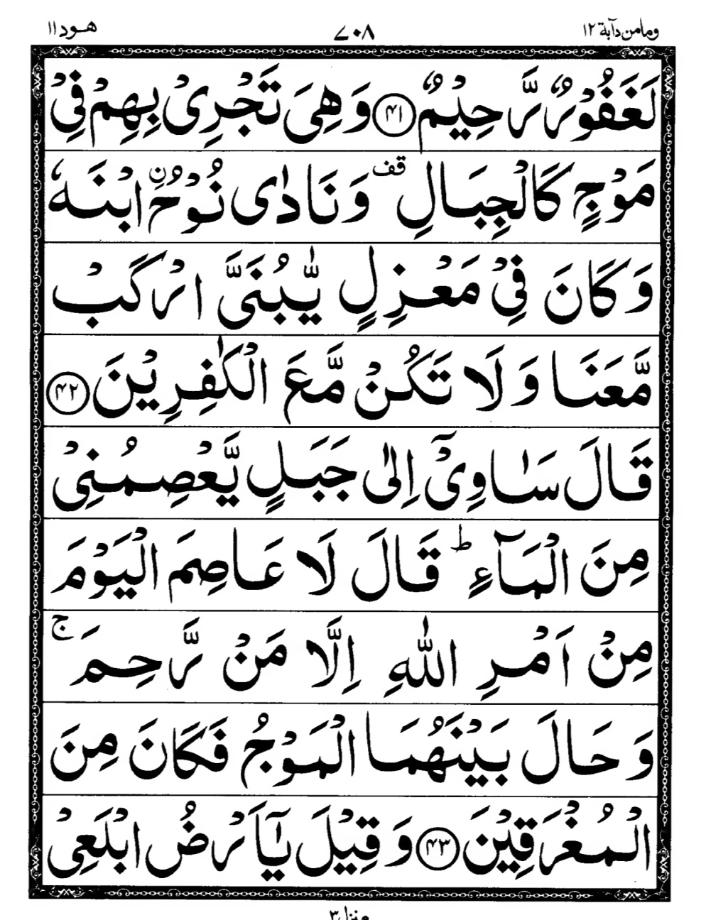 ومامن دآبة ١٢ ٧٠٨ هود ١١
لَغَفُوْرٌ رَّحِيْمٌ ﴿٤١﴾ وَهِيَ تَجْرِيْ بِهِمْ فِيْ
مَوْجٍ كَالْجِبَالِ ۫ قف وَنَادٰى نُوْحُ ۨ ابْنَهٗ
وَكَانَ فِيْ مَعْزِلٍ يّٰبُنَيَّ ارْكَبْ
مَّعَنَا وَلَا تَكُنْ مَّعَ الْكٰفِرِيْنَ ﴿٤٢﴾
قَالَ سَاٰوِيْۤ اِلٰى جَبَلٍ يَّعْصِمُنِيْ
مِنَ الْمَآءِ ؕ قَالَ لَا عَاصِمَ الْيَوْمَ
مِنْ اَمْرِ اللّٰهِ اِلَّا مَنْ رَّحِمَ ۚ
وَحَالَ بَيْنَهُمَا الْمَوْجُ فَكَانَ مِنَ
الْمُغْرَقِيْنَ ﴿٤٣﴾ وَقِيْلَ يٰۤاَرْضُ ابْلَعِيْ
منزل ٣